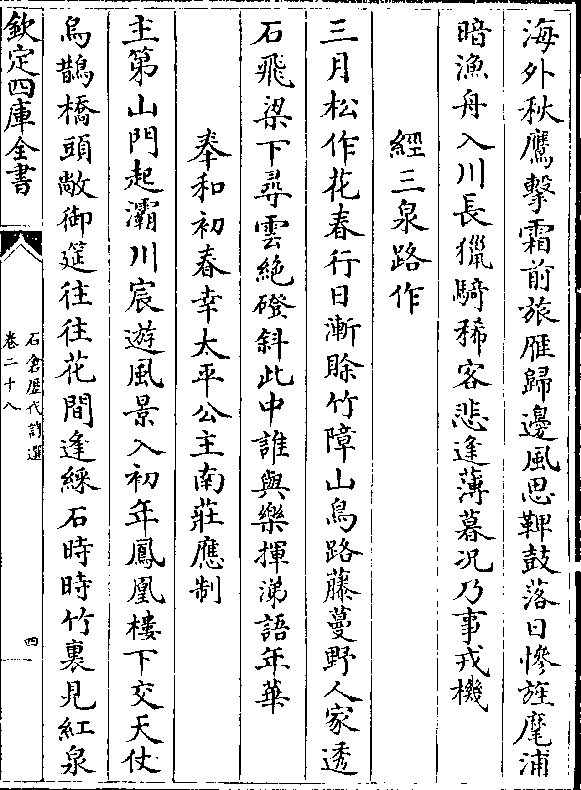 海外秋鷹擊霜前旅雁歸邊風思鞞鼓落日慘旌麾浦
暗漁舟入川長獵騎稀客悲逢薄暮况乃事戎機
經三泉路作
三月松作花春行日漸賖竹障山鳥路藤蔓野人家透
石飛梁下尋雲絶磴斜此中誰與樂揮涕語年華
奉和初春幸太平公主南莊應制
主第山門起灞川宸遊風景入初年鳳凰樓下交天仗
烏鵲橋頭敞御筵往往花間逢綵石時時竹裏見紅泉
欽定四庫全書
石倉歴代詩選
卷二十八
四